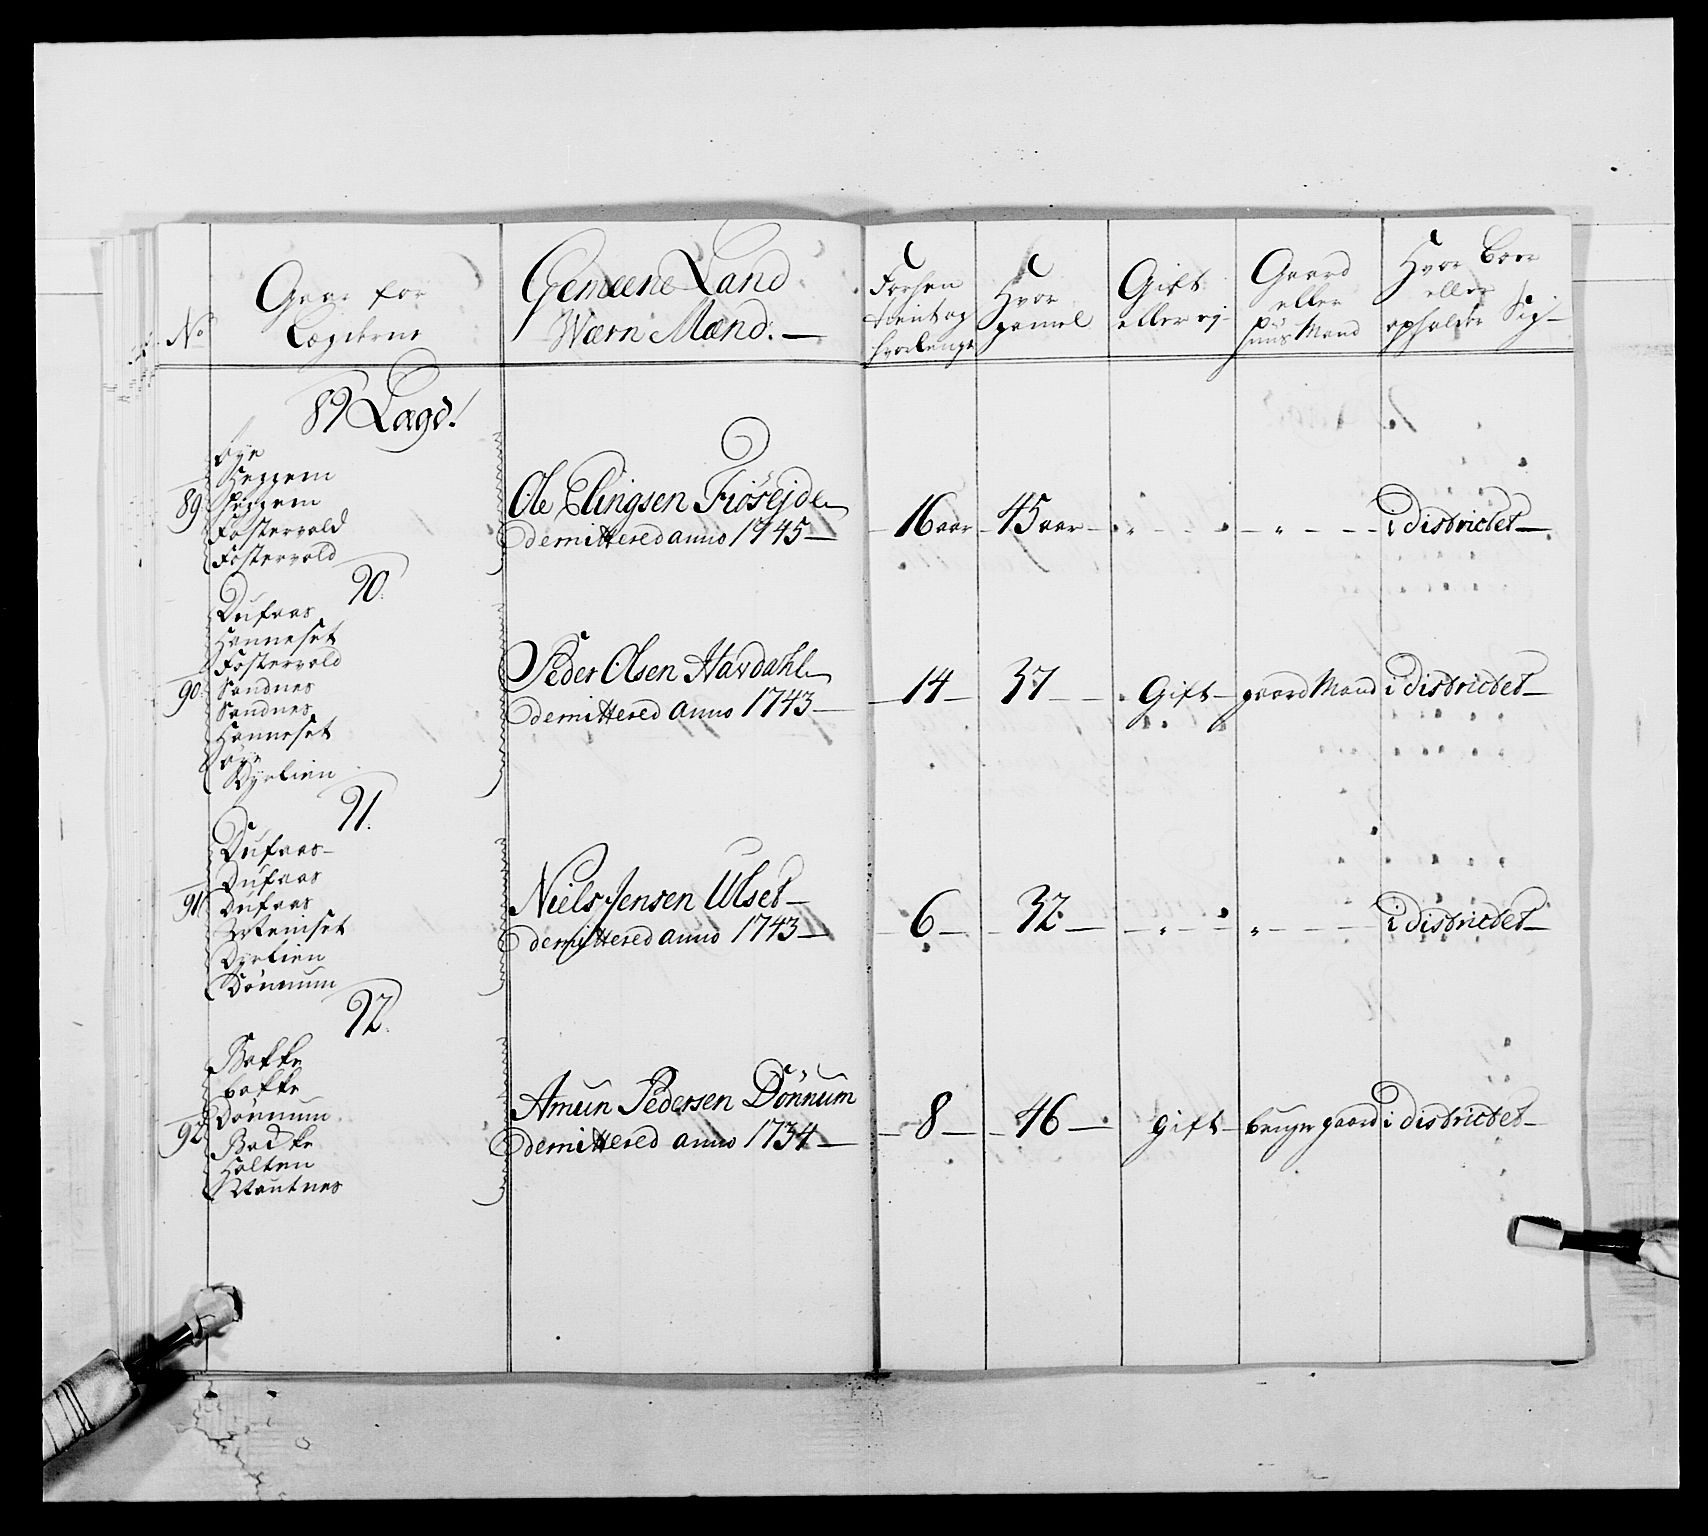 No
Gaar for
Lægderne
Gemeene Land
Wærn Mænd. —
Forhen
tient og
hvorlenge
Hvor
gamel
Gift
eller ej
Gaard
eller
huus Mand
Hvor boer
eller
opholder Sig
89 Lægd.
Øye
Heggem
89 Heggem
Fostervold
Fostervold
Ole Elingsen Fiöseide
demittered anno 1745 —
16 aar 45 aar i districtet —
90.
Dufaas
Hanneset
Fostervold
90. Sandnes
Sandnes
Hanneset
øye
Dyrlien
Peder Olsen Havdahl
demittered anno 1743 —
14 — 37 Gift — gaard Mand i districtet —
91.
Dufaas —
Dufaas
91 Dufaas
Dyrlien
Dönnum
Niels Jensen Ulset —
demittered anno 1743 —
6 — 32 — i districtet —
92.
Bakke
bakke
92 Dönnum
Badke
Holten
Stautnes
Amun Pedersen Dönnum
demittered anno 1734 —
8 — 46 — gift — bruger gaard i districtet —